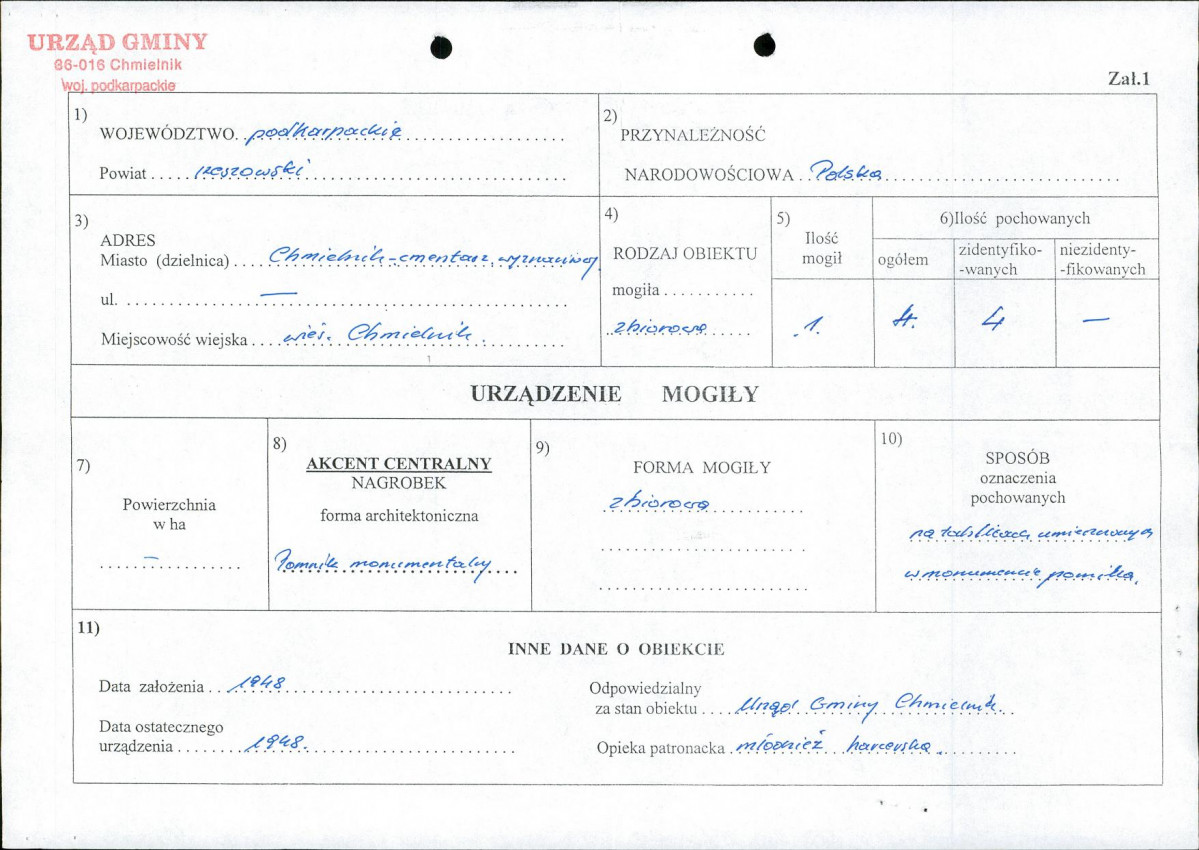 URZĄD GMINY
36-016 Chmielnik
woj. podkarpackie
Zał.1
1)
WOJEWÓDZTWO. podkarpackie
Powiat ..... rzeszowski
2)
PRZYNALEŻNOŚĆ
NARODOWOŚCIOWA .. Polska
3)
ADRES
Miasto (dzielnica) .... Chmielnik-cmentarz wyznaniowy
ul. —
Miejscowość wiejska .... wieś. Chmielnik.
4)
RODZAJ OBIEKTU
mogiła ...........
zbiorowa
5)
Ilość
mogił
1.
6)Ilość pochowanych
ogółem
zidentyfiko-
-wanych
niezidenty-
-fikowanych
4. 4 —
URZĄDZENIE MOGIŁY
7)
Powierzchnia
w ha
—
8)
AKCENT CENTRALNY
NAGROBEK
forma architektoniczna
Pomnik monumentalny
9)
FORMA MOGIŁY
zbiorowa
10)
SPOSÓB
oznaczenia
pochowanych
na tablicach umieszczonych
w monumencie pomnika.
11)
INNE DANE O OBIEKCIE
Data założenia .. 1948
Data ostatecznego
urządzenia ....... 1948.
Odpowiedzialny
za stan obiektu .... Urząd Gminy Chmielnik
Opieka patronacka młodzież harcerska.